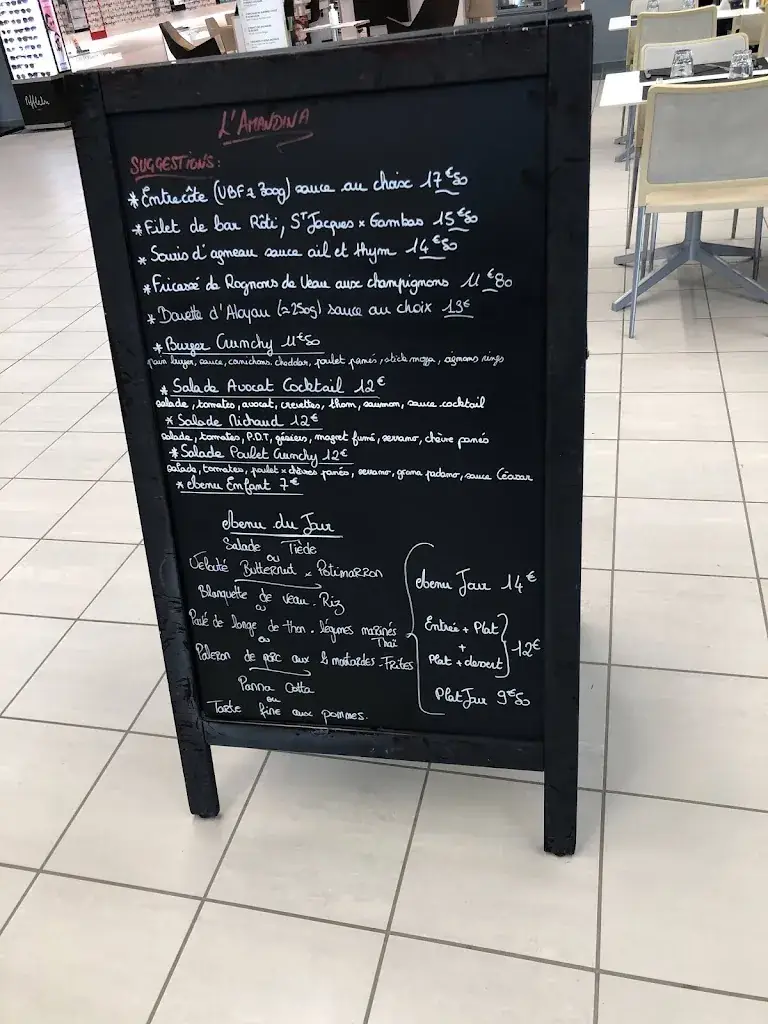 L'AMANDINA
SUGGESTIONS:
* Entrecôte (UBF ≈ 300g) sauce au choix 17€50
* Filet de bar Rôti, St Jacques x Gambas 15€50
* Souris d'agneau sauce ail et thym 14€50
* Fricassé de Rognons de Veau aux champignons 11€80
* Bavette d'Aloyau (≈250g) sauce au choix 13€
* Burger Crunchy 11€50
pain burger, sauce, cornichons, cheddar, poulet panés, stick mozza, oignons rings
* Salade Avocat Cocktail 12€
salade, tomates, avocat, crevettes, thon, saumon, sauce cocktail
* Salade Nichaud 12€
salade, tomates, P.D.T, gésiers, magret fumé, serrano, chèvre panés
* Salade Poulet Crunchy 12€
salade, tomates, poulet x chèvres panés, serrano, grana padano, sauce Céasar
* Menu Enfant 7€
Menu du Jour
Salade Tiède
ou
Velouté Butternut x Potimarron
Blanquette de veau. Riz
ou
Pavé de longe de thon. légumes marinés Thaï
ou
Paleron de porc aux 2 moutardes - Frites
Panna Cotta
ou
Tarte fine aux pommes.
Menu Jour 14€
Entrée + Plat
+
Plat + dessert
12€
Plat Jour 9€50